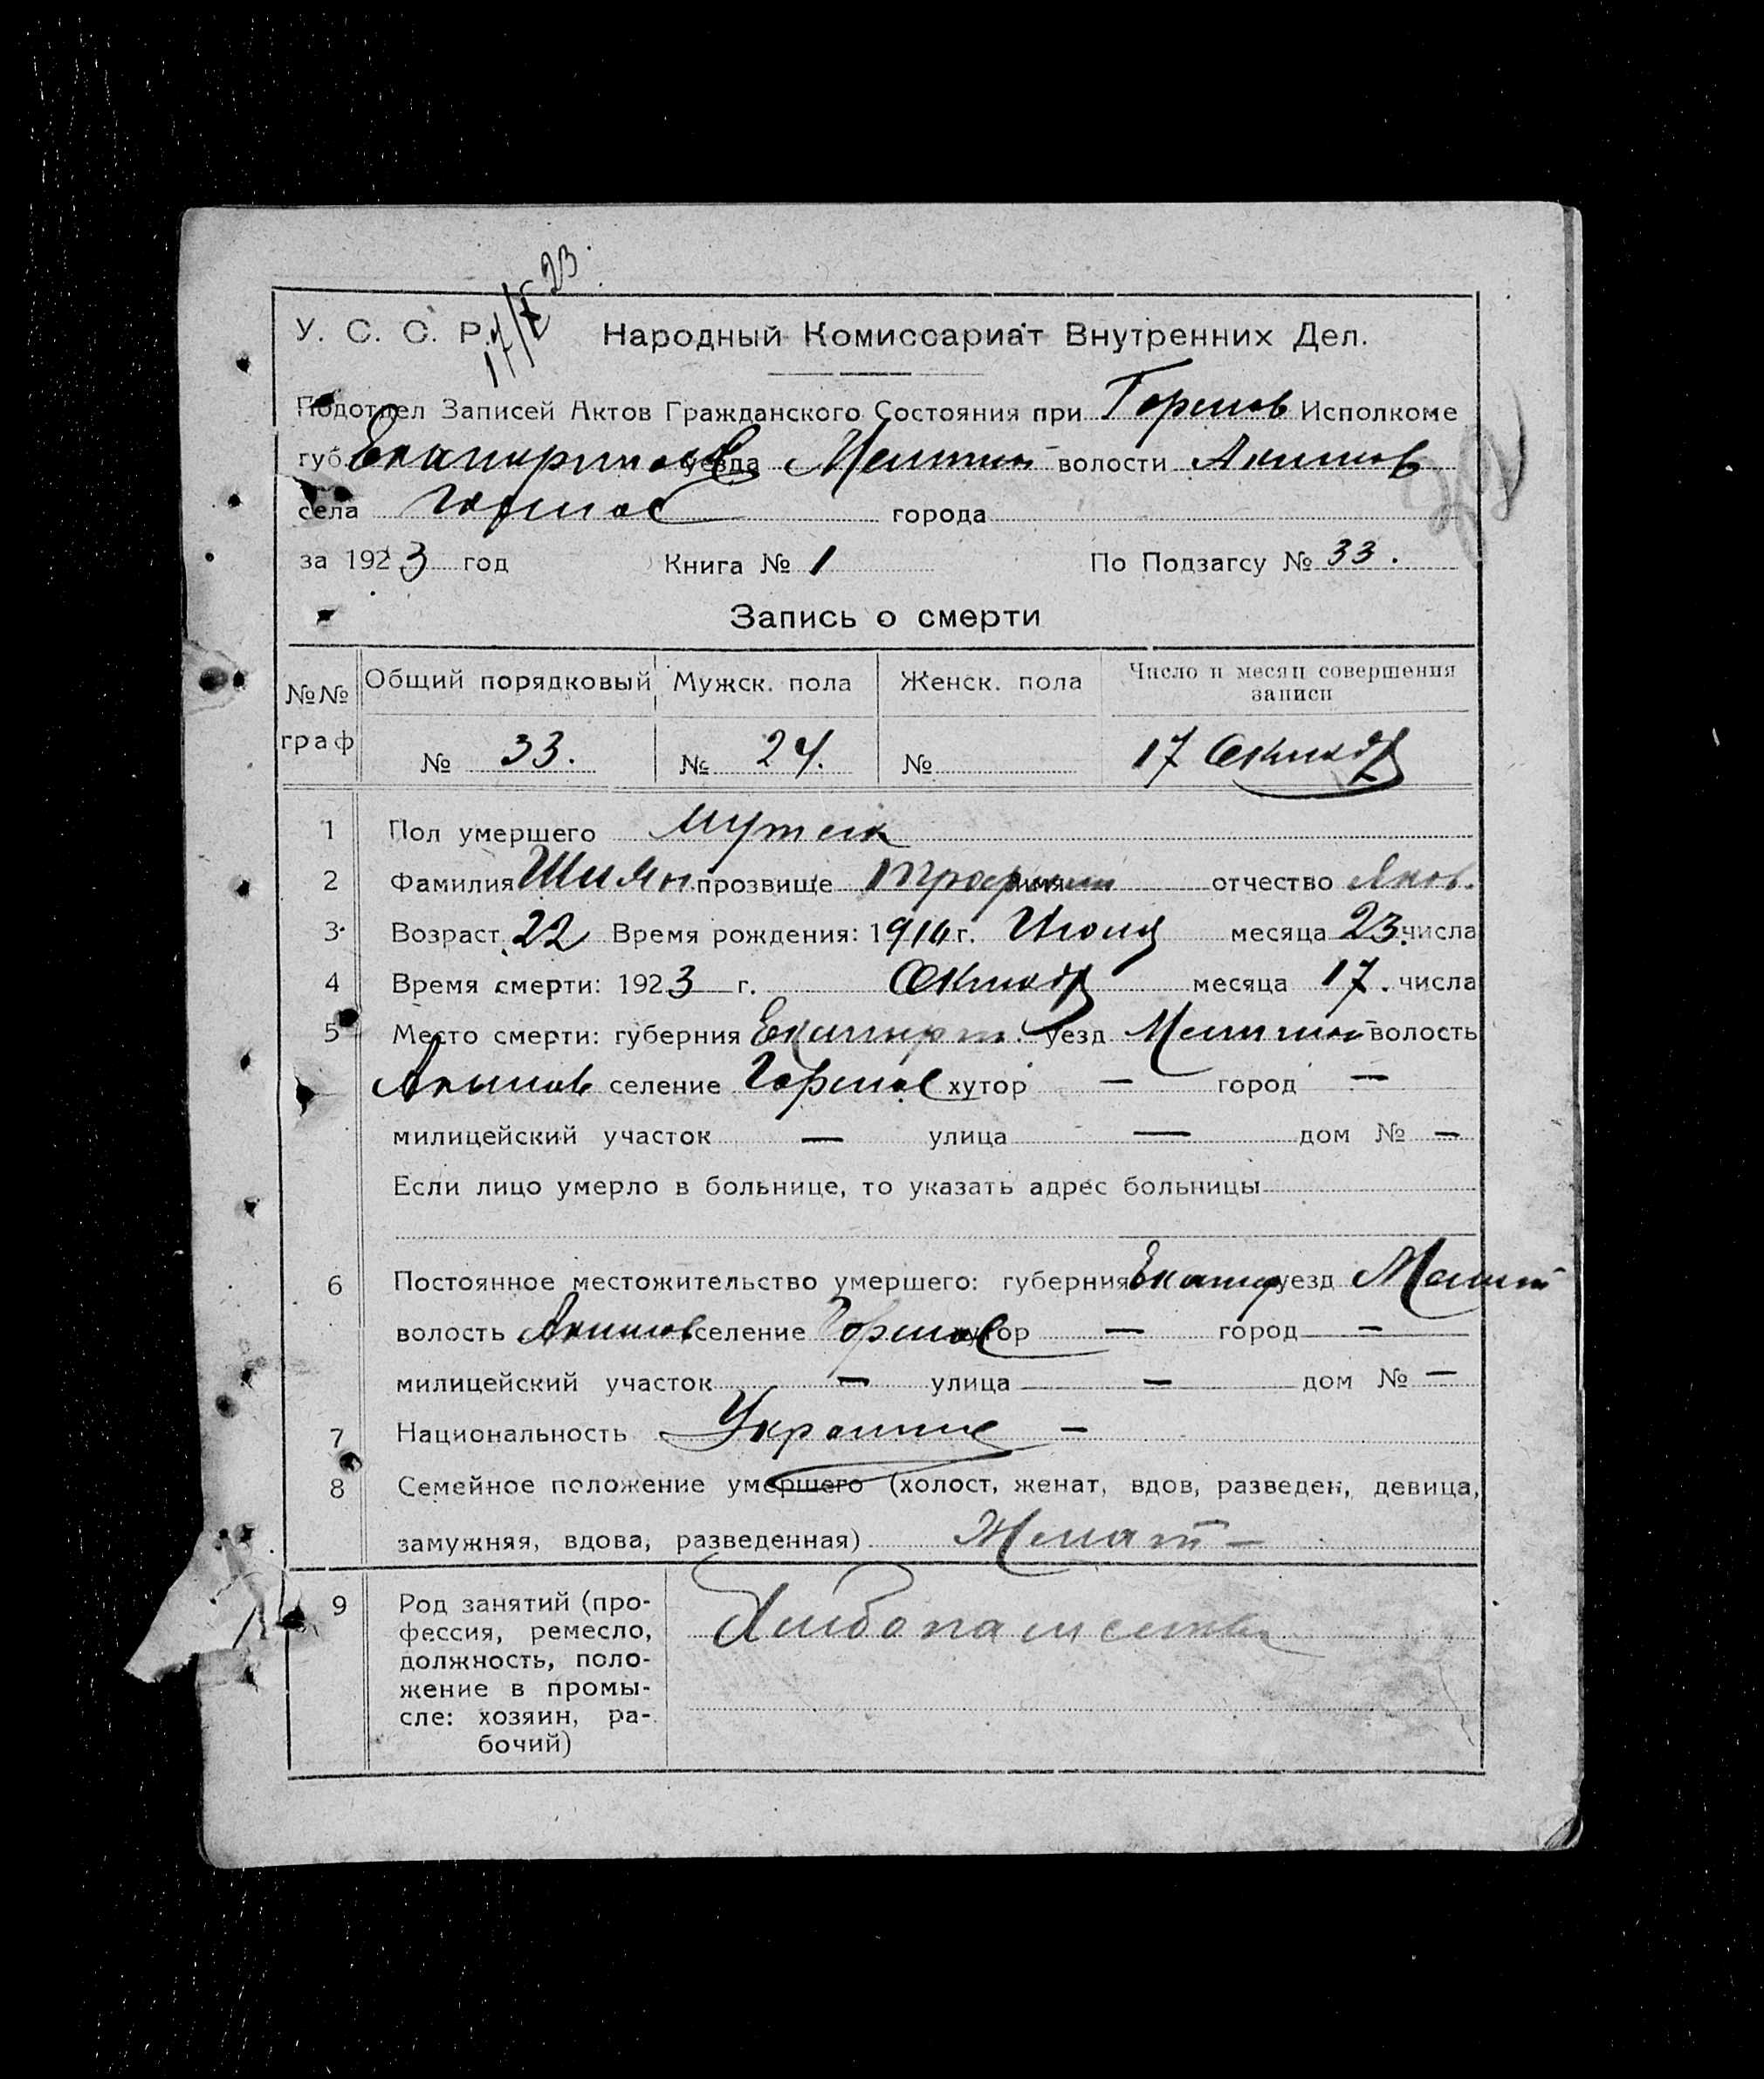 17/X 23.
У. С. С. Р. Народный Комиссариат Внутренних Дел.
Подотдел Записей Актов Гражданского Состояния при Горелов Исполкоме
губ. Екатеринослав уезда Мелитоп волости Акимов
села Горелое города
за 1923 год Книга № 1 По Подзагсу № 33.
Запись о смерти
№№ граф Общий порядковый Мужск. пола Женск. пола Число и месяц совершения записи
№ 33. № 24. № 17 Октябр
1 Пол умершего мужеск
2 Фамилия прозвище Трофим имя отчество Яков.
3 Возраст 22 Время рождения: 19 г. Июля месяца 23. числа
4 Время смерти: 1923 г. Октябр месяца 17. числа
5 Место смерти: губерния Екатерин. уезд Мелитоп волость
Акимов селение Горелое хутор — город —
милицейский участок — улица — дом № —
Если лицо умерло в больнице, то указать адрес больницы
6 Постоянное местожительство умершего: губерния Екатер уезд Мелит
волость Акимов селение Горелое хутор — город —
милицейский участок — улица — дом № —
7 Национальность Украинец —
8 Семейное положение умершего (холост, женат, вдов, разведен, девица,
замужняя, вдова, разведенная) Женат —
9 Род занятий (про-
фессия, ремесло,
должность, поло-
жение в промы-
сле: хозяин, ра-
бочий)
Хлебопашество